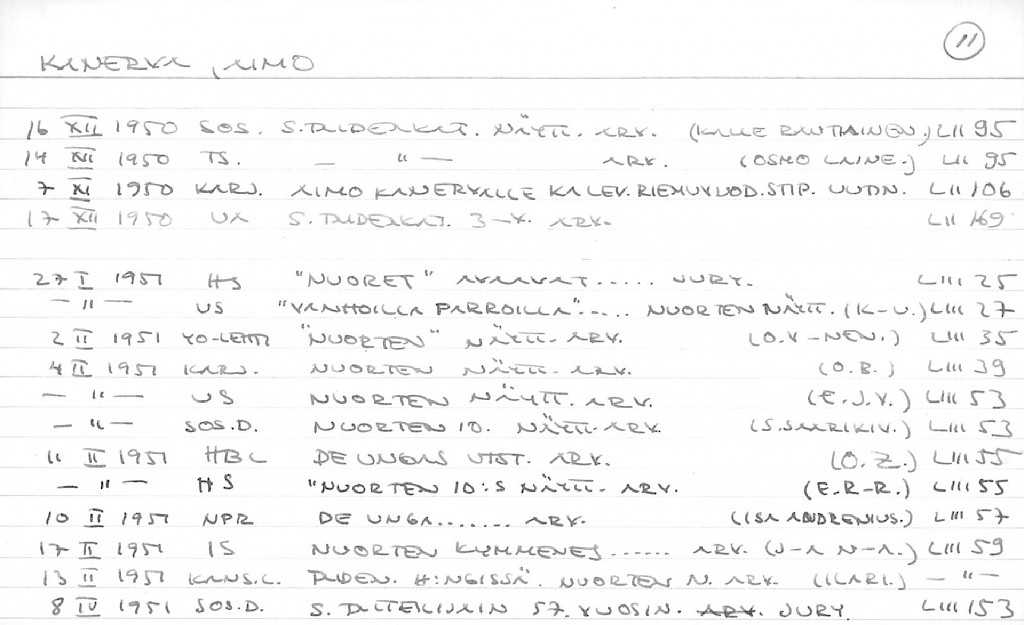 11
KANERVA, AIMO
16 XII 1950 SOS. S.TAIDEAKAT. NÄYTT. ARV. (KALLE RAUTIAINEN.) LII 95
14 XII 1950 TS. — " — ARV. (OSMO LAINE.) LII 95
7 XI 1950 KARJ. AIMO KANERVALLE KALEV.RIEMUVUOD.STIP. UUTN. LII 106
17 XII 1950 UA S.TAIDEAKAT. 3-V. ARV. LII 169
27 I 1951 HS "NUORET" AVAAVAT..... JURY. LIII 25
— " — US "VANHOILLA PARROILLA"..... NUORTEN NÄYTT. (K-U.) LIII 27
2 II 1951 YO-LEHTI "NUORTEN" NÄYTT. ARV. (O.V-NEN.) LIII 35
4 II 1951 KARJ. NUORTEN NÄYTT. ARV. (O.B.) LIII 39
— " — US NUORTEN NÄYTT. ARV. (E.J.V.) LIII 53
— " — SOS.D. NUORTEN 10. NÄYTT. ARV. (S.SAARIKIV.) LIII 53
11 II 1951 HBL DE UNGAS UTST. ARV. (O.Z.) LIII 55
— " — HS "NUORTEN 10:S NÄYTT. ARV. (E.R-R.) LIII 55
10 II 1951 NPR DE UNGA....... ARV. (LISA ANDRENIUS.) LIII 57
17 II 1951 IS NUORTEN KYMMENES...... ARV. (J-A N-A.) LIII 59
13 II 1951 KANS.L. TAIDEN. H:NGISSÄ. NUORTEN N. ARV. (ILARI.) — " —
8 IV 1951 SOS.D. S. TAITEILIJAIN 57. VUOSIN. ARV. JURY. LIII 153